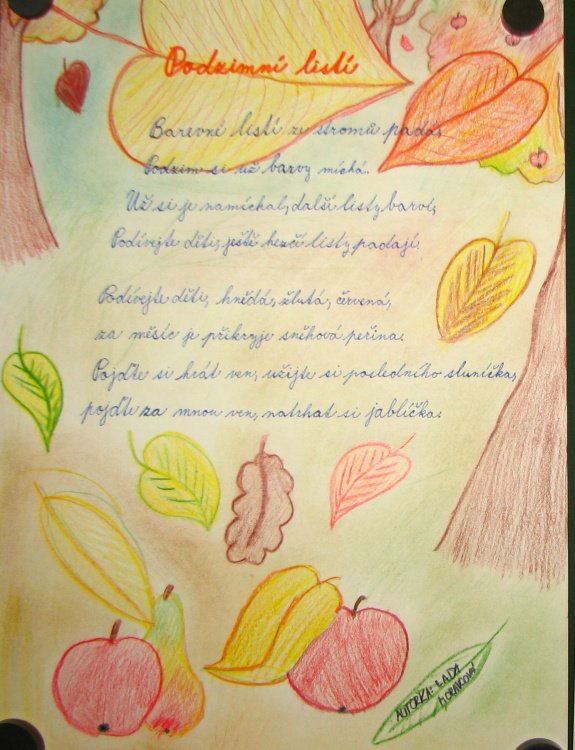 Podzimní listí
Barevné listí ze stromů padá.
Podzim si už barvy míchá.
Už si je namíchal, další listy barví,
Podívejte děti, ještě hezčí listy padají.
Podívejte děti, hnědá, žlutá, červená,
za měsíc je přikryje sněhová peřina.
Pojďte si hrát ven, užijte si posledního sluníčka,
pojďte za mnou ven, natrhat si jablíčka.
AUTORKA: LADA